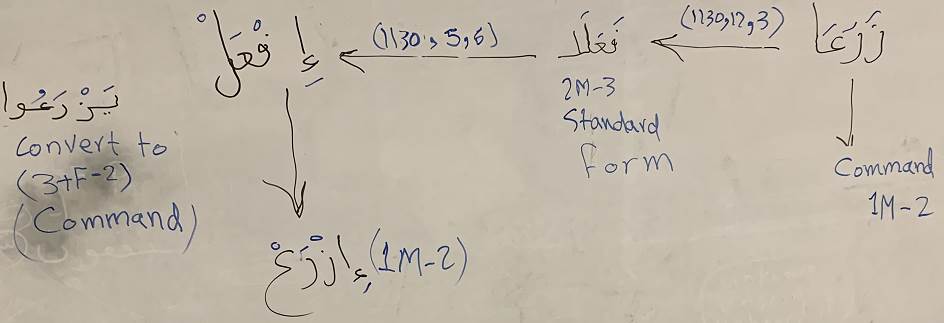 زَرَعَا
(1130,12,3)
فَعَلَا
(1130,5,6)
إِفْعَلْ
2M-3
Standard
Form
Command
1M-2
إِزْرَعْ (1M-2)
يَزْرَعُوا
convert to
(3+F-2)
(Command)